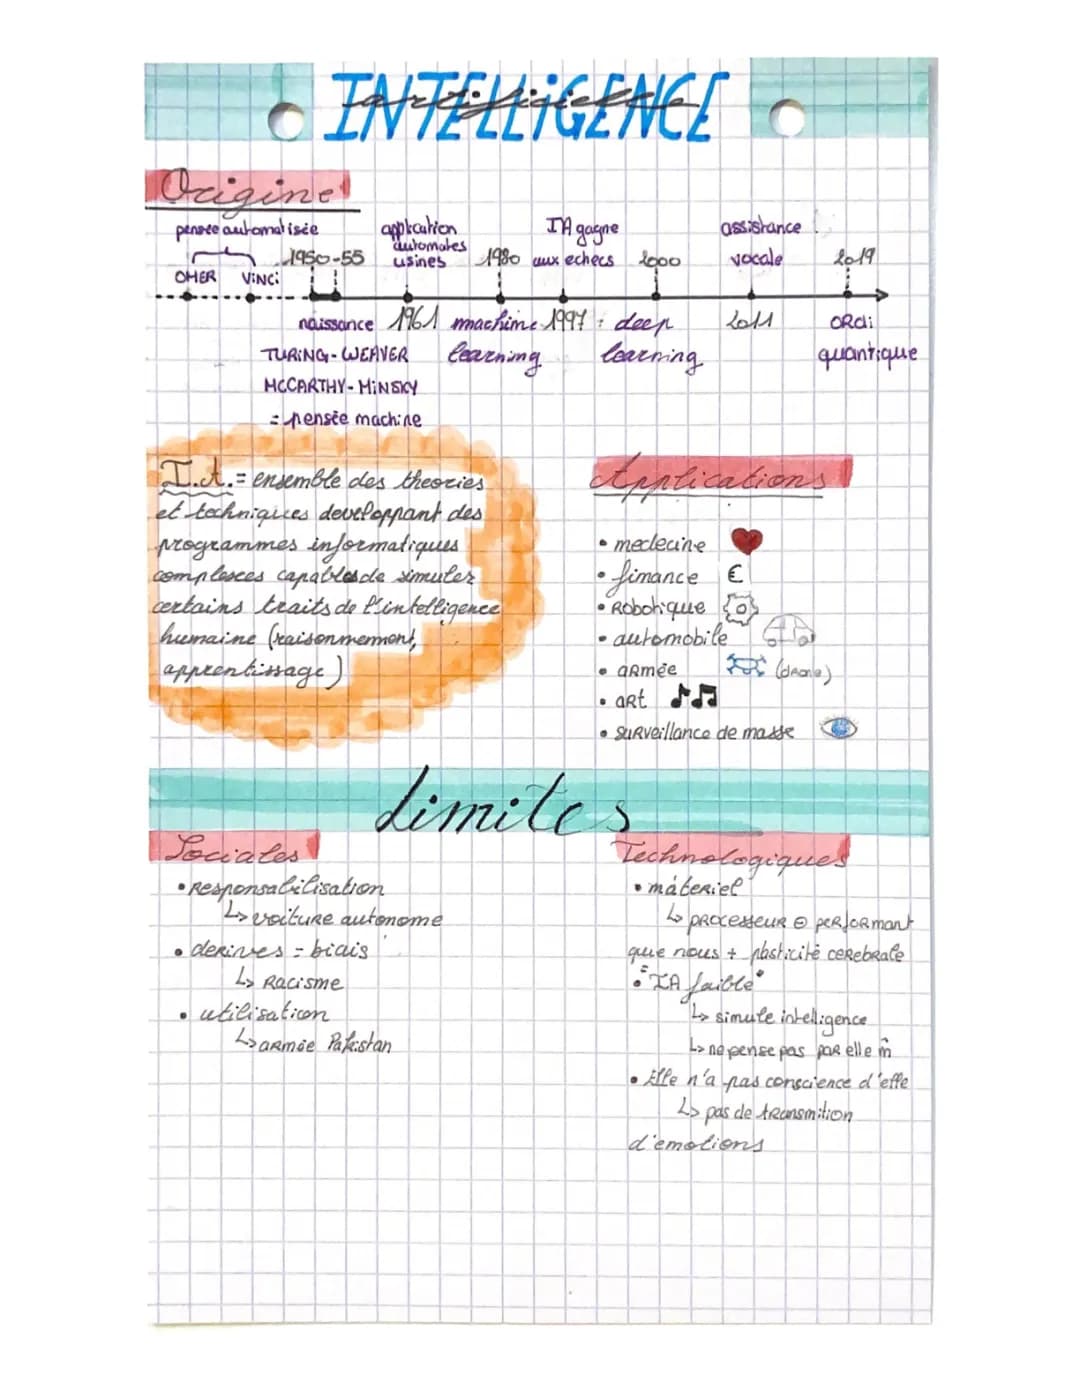 INTELLIGENCE
artificielle
Origine
pensée automatisée
application
automates
usines
IA gagne
aux echecs
assistance
vocale
OMER
ViNCi
1950-55
1980
2000
2019
naissance
1961
machine
learning
1997
deep
learning
2011
ORdi
quantique
TURiNG-WEAVER
MCCARTHY-MiNSKY
= pensée machine
I.A. = ensemble des theories
et techniques developpant des
programmes informatiques
complexes capables de simuler
certains traits de l'intelligence
humaine (raisonnement,
apprentissage)
Applications
• medecine
• finance €
• Robotique
• automobile
• aRmée (drone)
• aRt
• suRveillance de masse
Limites
Sociales
• Responsabilisation
↳ voiture autonome
• derives = biais
↳ Racisme
• utilisation
↳ aRmée Pakistan
Technologiques
• máteRiel
↳ pRocesseuR ⊖ peRfoRmant
que nous + plasticité ceRebRale
• "IA faible"
↳ simule intelligence
↳ ne pense pas paR elle m̂
• Elle n'a pas conscience d'elle
↳ pas de tRansmition
d'emotions